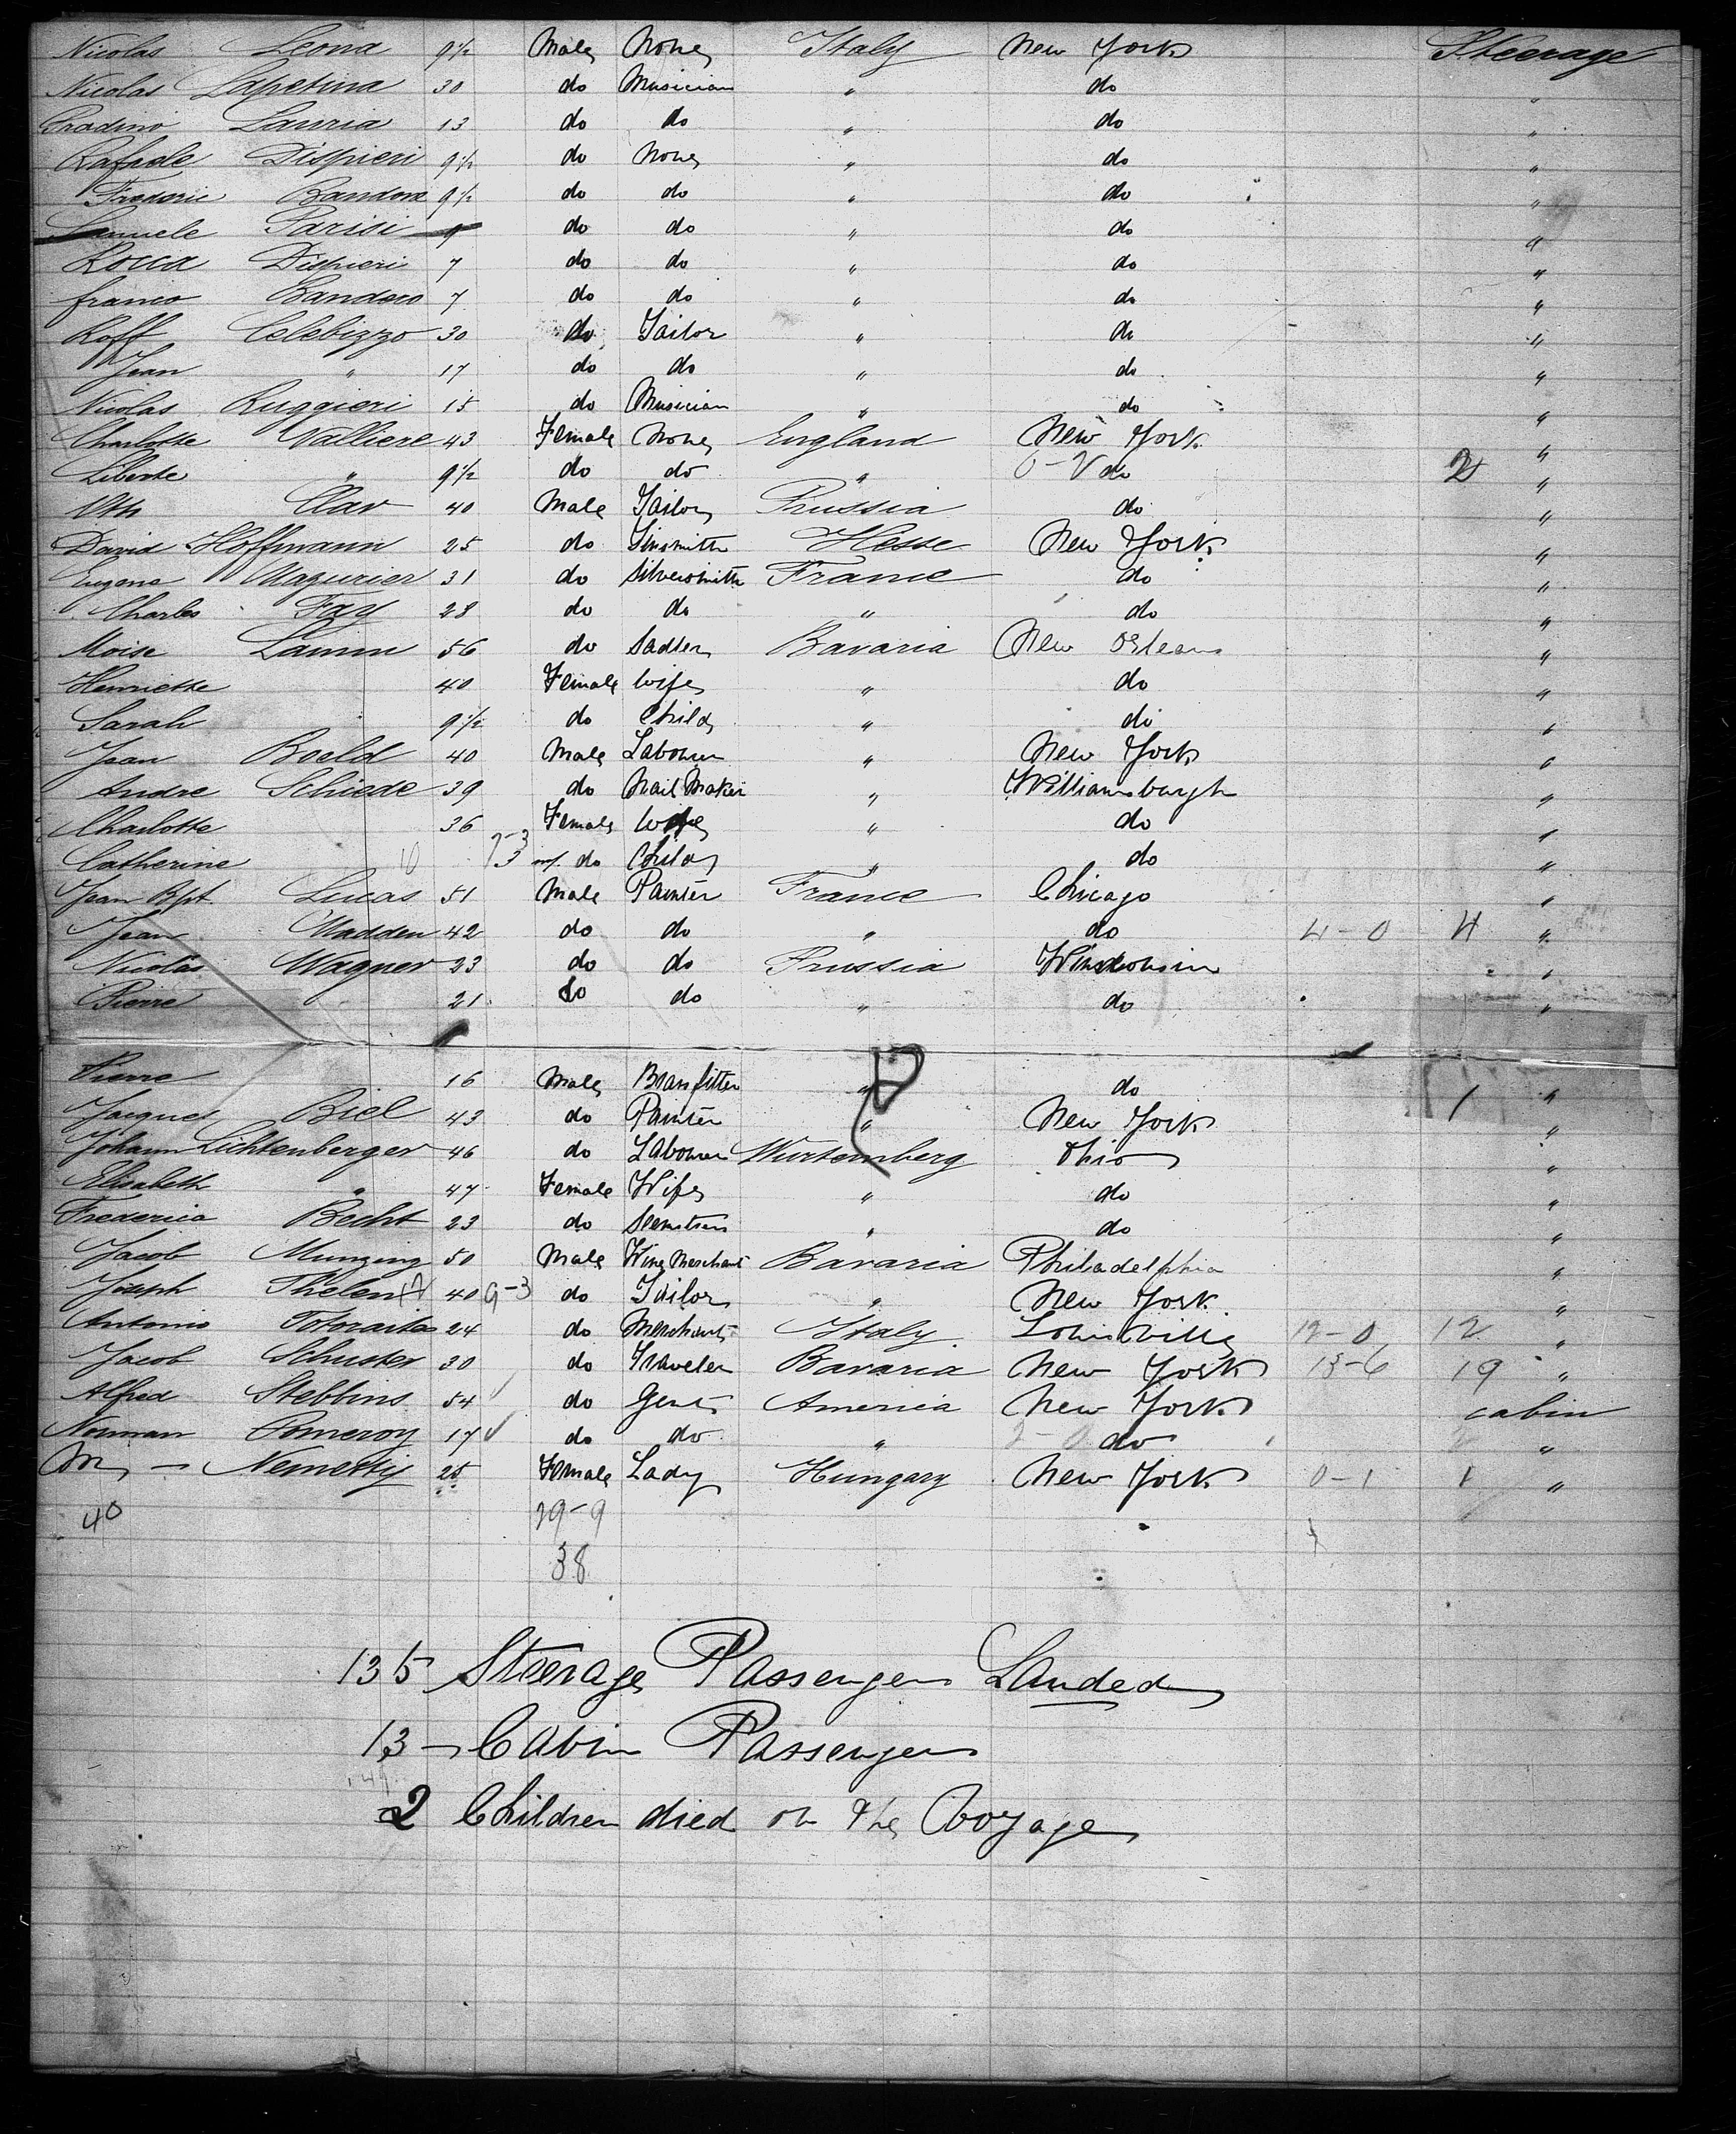 Nicolas Leona 9 1/2 Male None Italy New York Steerage
Nicolas Lapetina 30 do Musician " do "
Pradino Lauria 13 do do " do "
Rafaele Dispieri 9 1/2 do None " do "
Frederic Bandora 9 1/2 do do " do "
Parisi 9 do do " do "
Rocca Dispieri 7 do do " do "
franco Bandoro 7 do do " do "
Roff Celebizzo 30 do Tailor " do "
Jean " 17 do do " do "
Nicolas Ruggieri 15 do Musician " do "
Charlotte Valliere 43 Female None England New York "
Liberte " 9 1/2 do do " do 2 "
Oth Clav 40 Male Tailor Prussia do "
David Hoffmann 25 do Tinsmith Hesse New York "
Eugene Mazurier 31 do Silversmith France do "
Charles Fay 28 do do " do "
Moise Lamm 56 do Sadler Bavaria New Orleans "
Henriette 40 Female Wife " do "
Sarah 9 1/2 do Child " do "
Jean Boeld 40 Male Labourer " New York "
Andre Schiede 39 do Nail Maker " Williamsburgh "
Charlotte 36 Female Wife " do "
Catherine 10 do Child " do "
Jean Bpt Lucas 51 Male Painter France Chicago "
Jean Madden 42 do do " do 4-0 4 "
Nicolas Wagner 23 do do Prussia Winsconsin "
Pierre 21 do do " do "
Pierre 16 Male Brassfitter " do "
Jacques Biel 43 do Painter " New York 1 "
Johann Lichtenberger 46 do Labourer Wurtemberg Ohio "
Elisabeth " 47 Female Wife " do "
Frederica Becht 23 do Seemstress " do "
Jacob Munzing 50 Male Wine Merchant Bavaria Philadelphia "
Joseph Thelen 40 9-3 do Tailor " New York "
Antonio Totoraita 24 do Merchant Italy Louisville 12-0 12 "
Jacob Schuster 30 do Traveler Bavaria New York 13-6 19 "
Alfred Stebbins 54 do Gent America New York cabin
Norman Pomeroy 17 do do " 2-0 do 2 "
Mrs - Nemetty 25 Female Lady Hungary New York 0-1 1 "
40 29-9
38
135 Steerage Passengers Landed
13 - Cabin Passengers
2 Children died on the Voyage